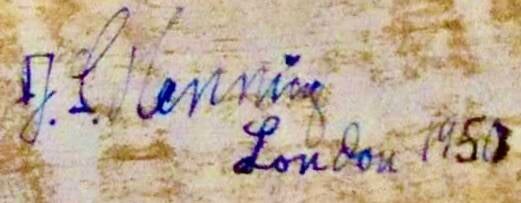 J. S. Henning
London 1950